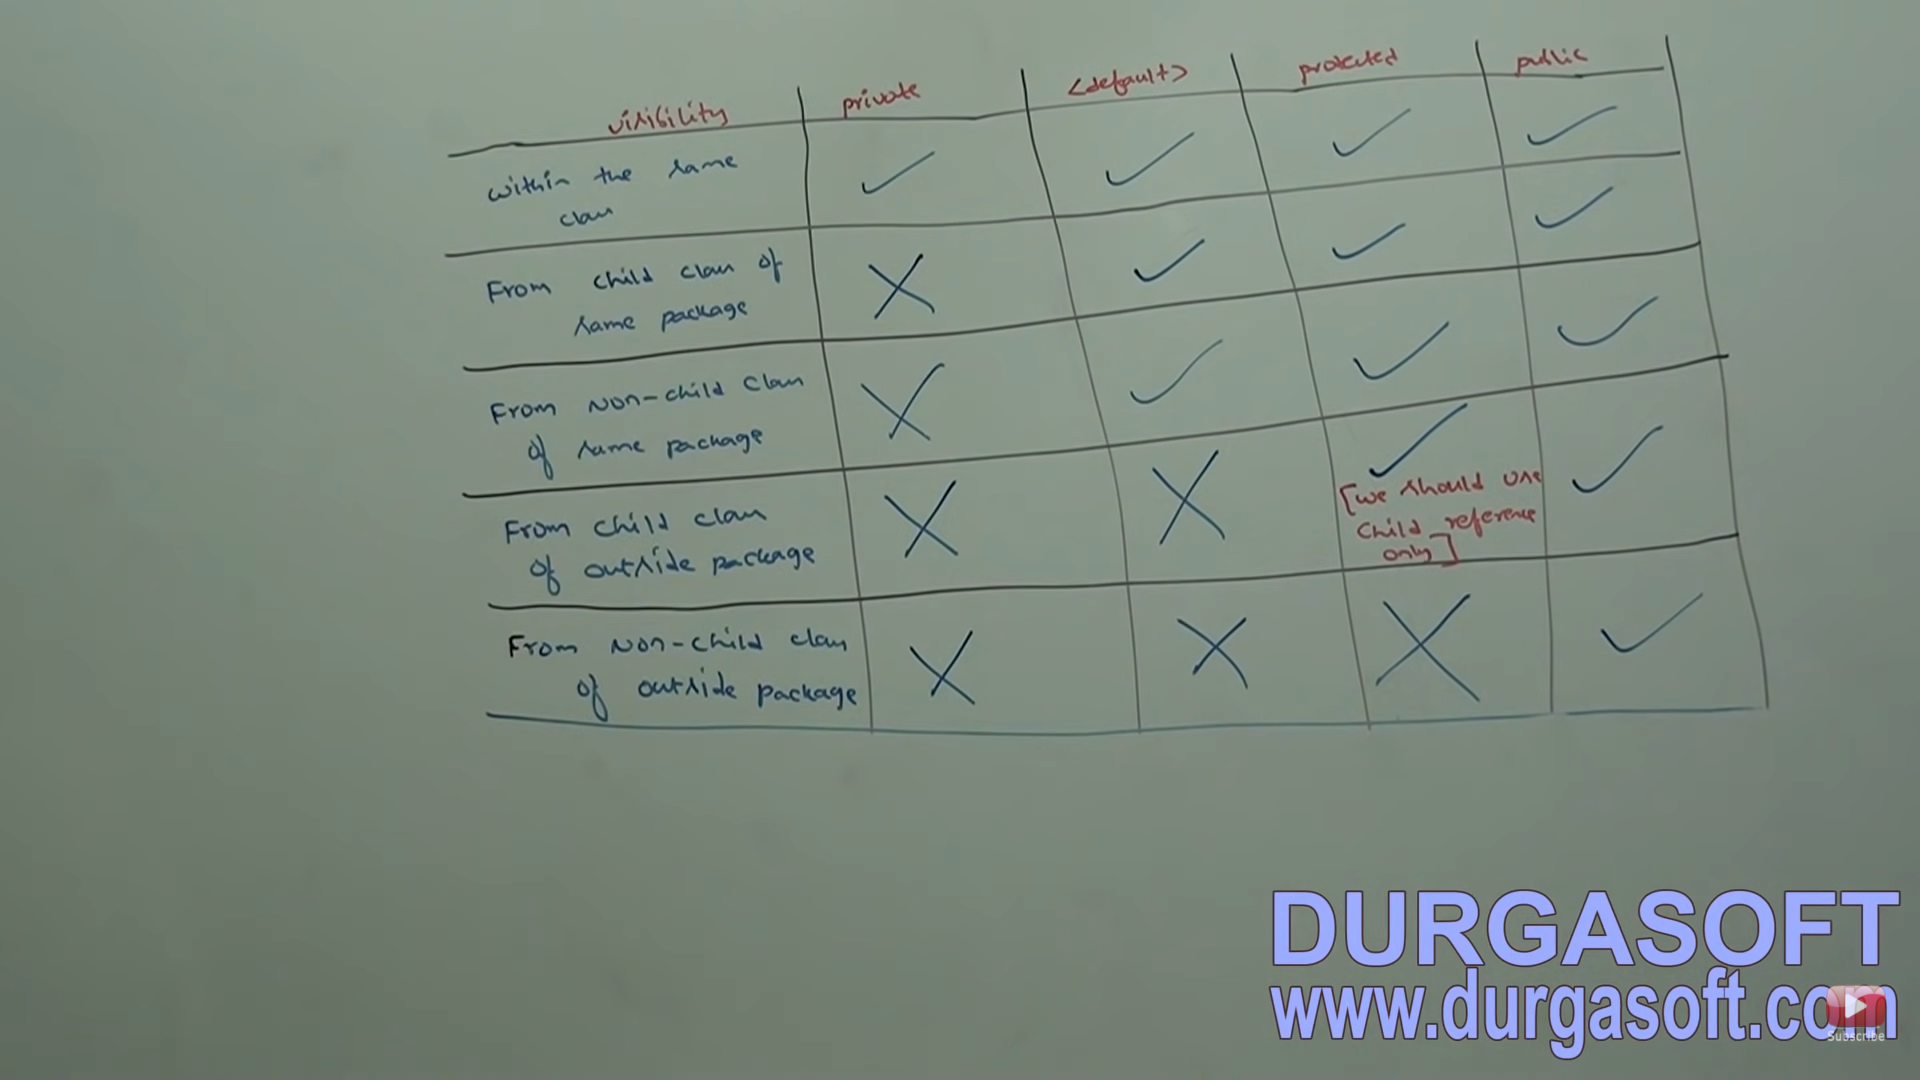 visibility private <default> protected public
within the same ✓ ✓ ✓ ✓
class
From child class of X ✓ ✓ ✓
same package
From Non-child class X ✓ ✓ ✓
of same package
From child class X X ✓ ✓
of outside package
[we should use
child reference
only]
From Non-child class X X X ✓
of outside package
DURGASOFT
www.durgasoft.com
Subscribe